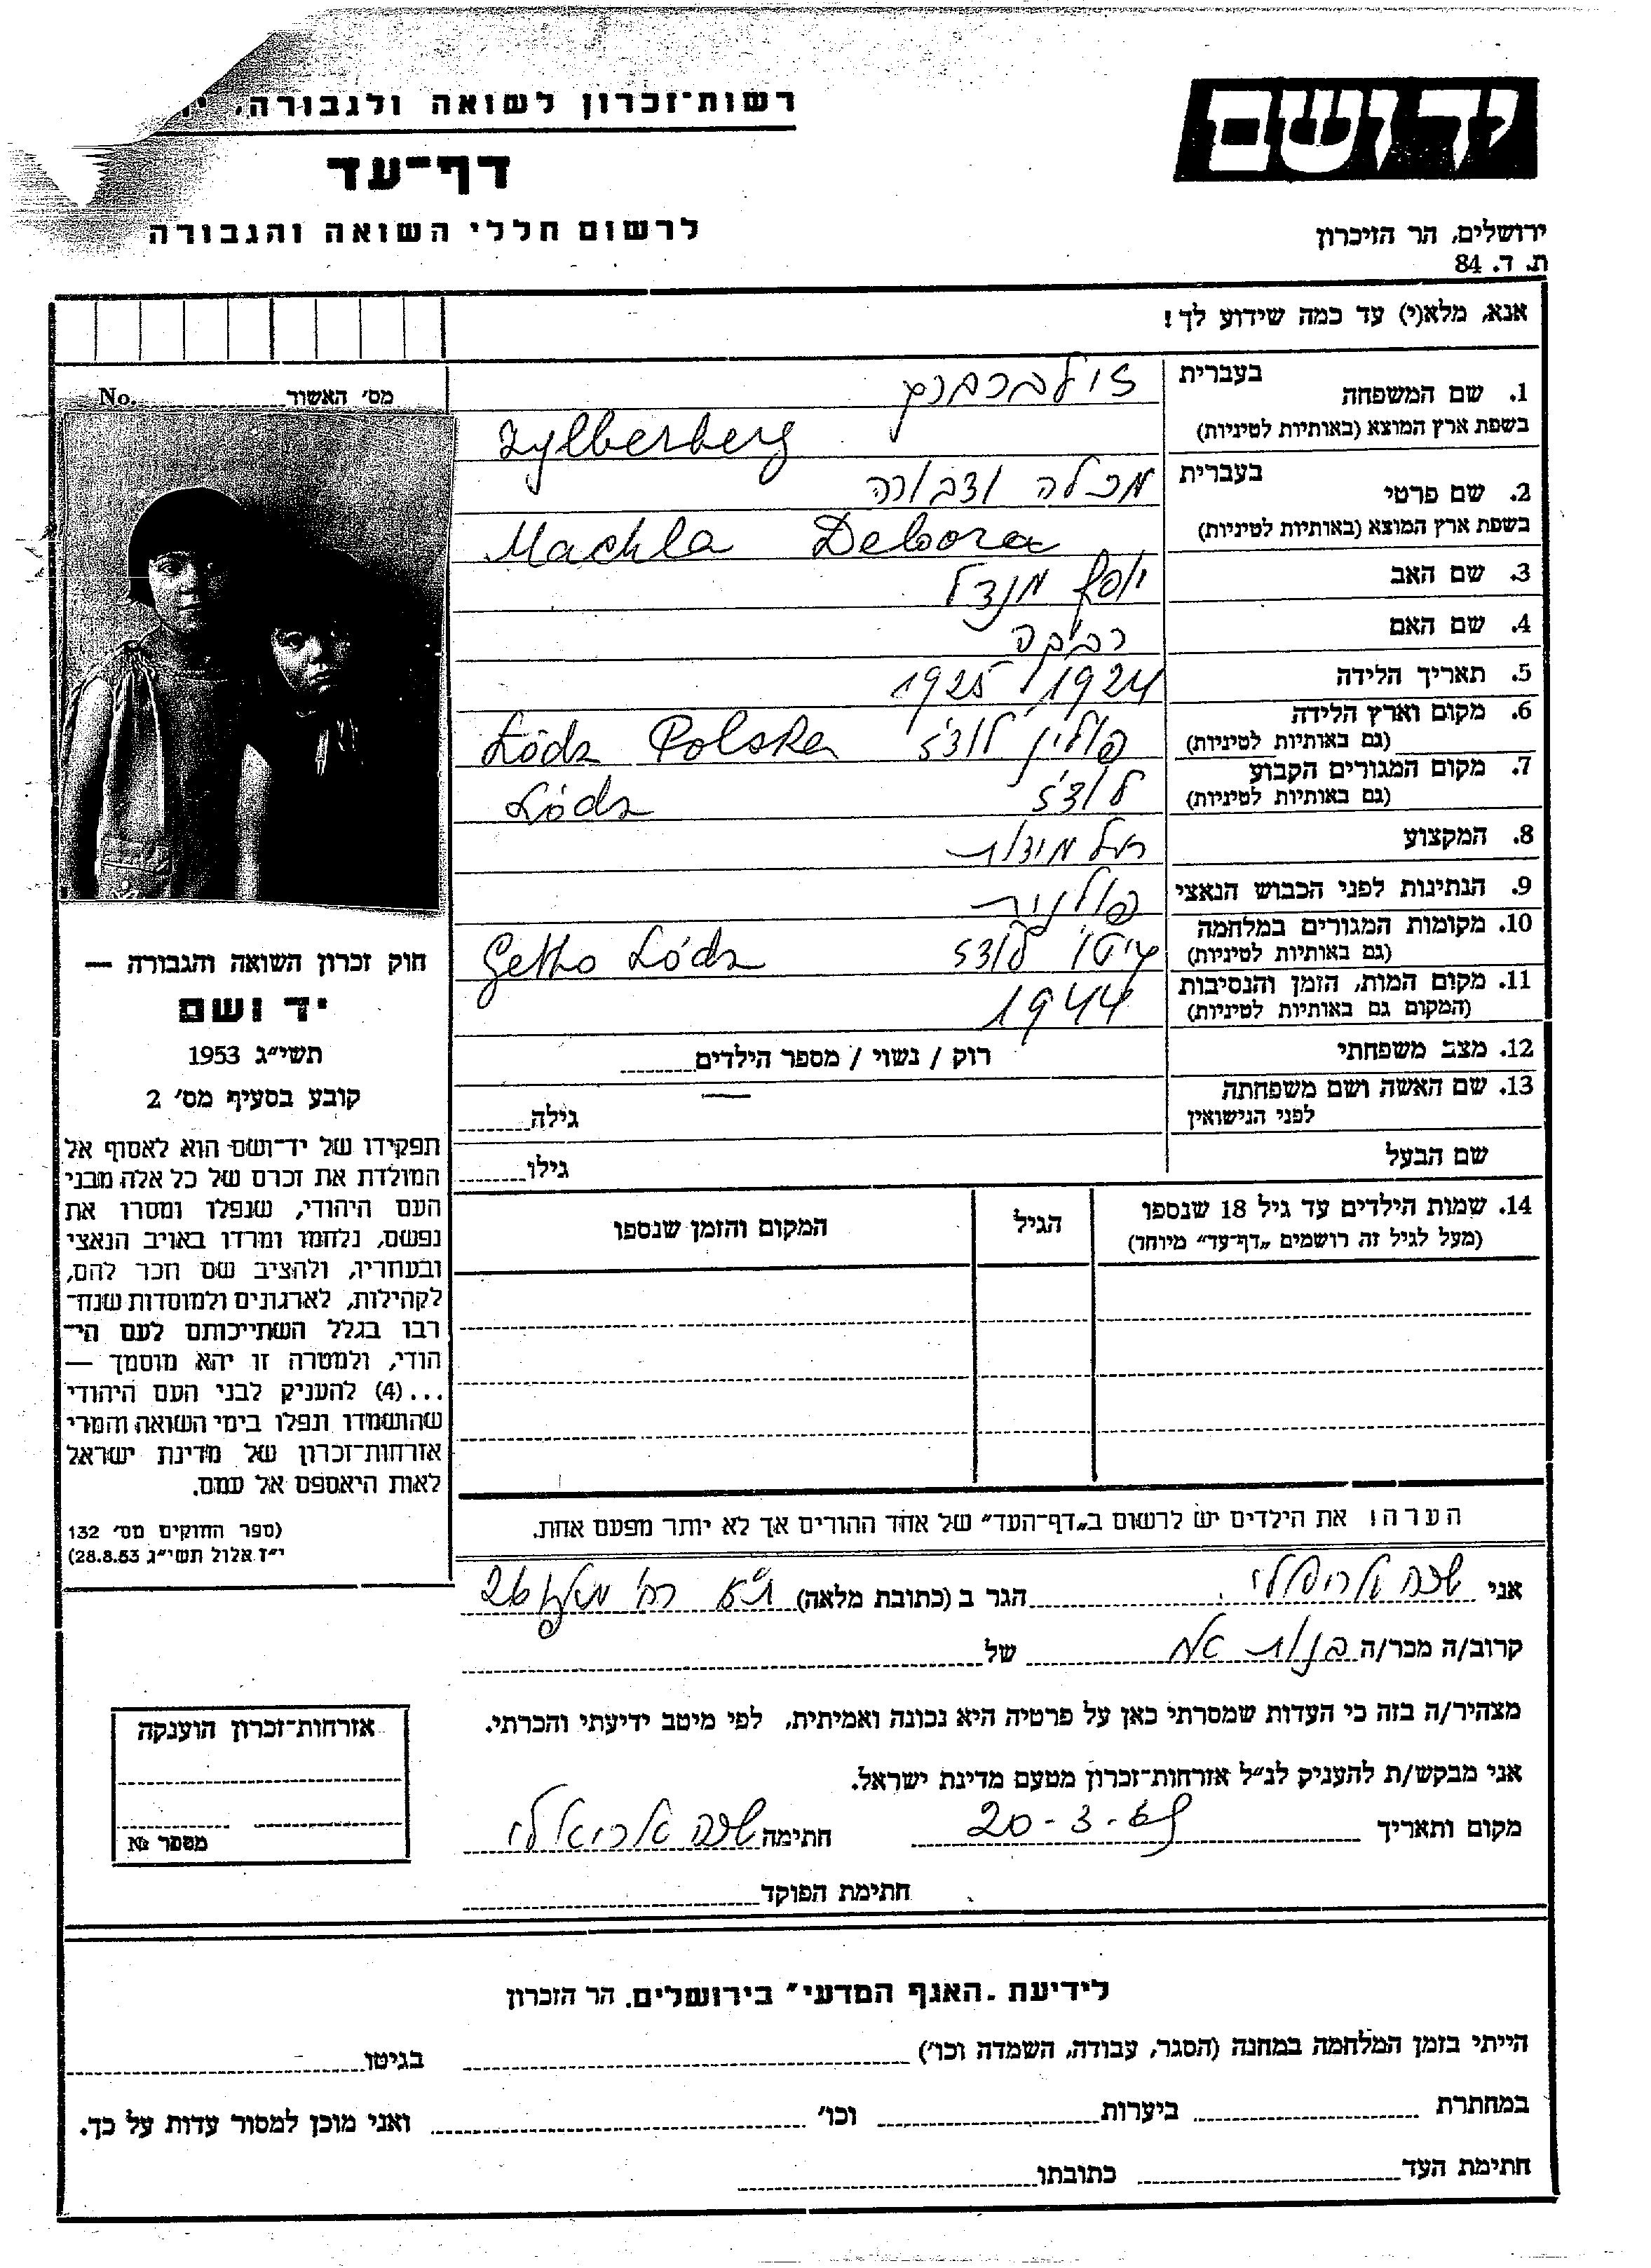 רשות־זכרון לשואה ולגבורה,
דף־עד
לרשום חללי השואה והגבורה
יד ושם
ירושלים, הר הזיכרון
ת. ד. 84
אנא, מלא(י) עד כמה שידוע לך!
מס׳ האשור No.
1. שם המשפחה
בעברית זילברברג
בשפת ארץ המוצא (באותיות לטיניות) Zylberberg
2. שם פרטי
בעברית מכלה ודבורה
בשפת ארץ המוצא (באותיות לטיניות) Machla Debora
3. שם האב יוסף מנדל
4. שם האם רבקה
5. תאריך הלידה 1924 / 1925
6. מקום וארץ הלידה פולין לודז Łódz Polska
(גם באותיות לטיניות)
7. מקום המגורים הקבוע לודז Łódz
(גם באותיות לטיניות)
8. המקצוע תלמידות
9. הנתינות לפני הכבוש הנאצי פולנית
10. מקומות המגורים במלחמה גיטו לודז Getto Łódz
(גם באותיות לטיניות)
11. מקום המות, הזמן והנסיבות 1944
(המקום גם באותיות לטיניות)
12. מצב משפחתי רוק / נשוי / מספר הילדים
13. שם האשה ושם משפחתה
לפני הנישואין גילה
שם הבעל גילו
14. שמות הילדים עד גיל 18 שנספו הגיל המקום והזמן שנספו
(מעל לגיל זה רושמים „דף־עד״ מיוחד)
חוק זכרון השואה והגבורה —
יד ושם
תשי״ג 1953
קובע בסעיף מס׳ 2
תפקידו של יד־ושם הוא לאסוף אל
המולדת את זכרם של כל אלה מבני
העם היהודי, שנפלו ומסרו את
נפשם, נלחמו ומרדו באויב הנאצי
ובעוזריו, ולהציב שם וזכר להם,
לקהילות, לארגונים ולמוסדות שנח־
רבו בגלל השתייכותם לעם הי־
הודי, ולמטרה זו יהא מוסמך —
...(4) להעניק לבני העם היהודי
שהושמדו ונפלו בימי השואה והמרי
אזרחות־זכרון של מדינת ישראל
לאות היאספם אל עמם.
(ספר החוקים מס׳ 132
י״ז אלול תשי״ג 28.8.53)
הערה! את הילדים יש לרשום ב„דף־העד״ של אחד ההורים אך לא יותר מפעם אחת.
אני הגר ב (כתובת מלאה) ת״א רח׳ 26
קרוב/ה מכר/ה בנות אח של
מצהיר/ה בזה כי העדות שמסרתי כאן על פרטיה היא נכונה ואמיתית, לפי מיטב ידיעתי והכרתי.
אני מבקש/ת להעניק לנ״ל אזרחות־זכרון מטעם מדינת ישראל.
מקום ותאריך 20-3- חתימה
חתימת הפוקד
אזרחות־זכרון הוענקה
מספר №
לידיעת „האגף המדעי״ בירושלים, הר הזכרון
הייתי בזמן המלחמה במחנה (הסגר, עבודה, השמדה וכו׳) בגיטו
במחתרת ביערות וכו׳ ואני מוכן למסור עדות על כך.
חתימת העד כתובתו